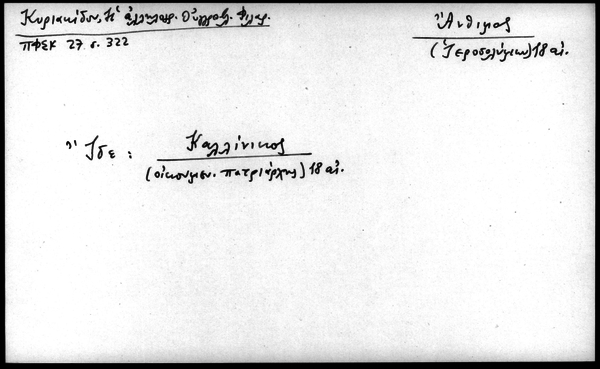 Κυριακίδου, Ἡ ἀλληλογρ. Οὐγγροβλ. Φιλαρ.
ΠΦΣΚ 27 σ. 322
Ἄνθιμος
(Ἱεροσολύμων) 18 αἰ.
Ἴδε : Καλλίνικος
(οἰκουμεν. πατριάρχης) 18 αἰ.